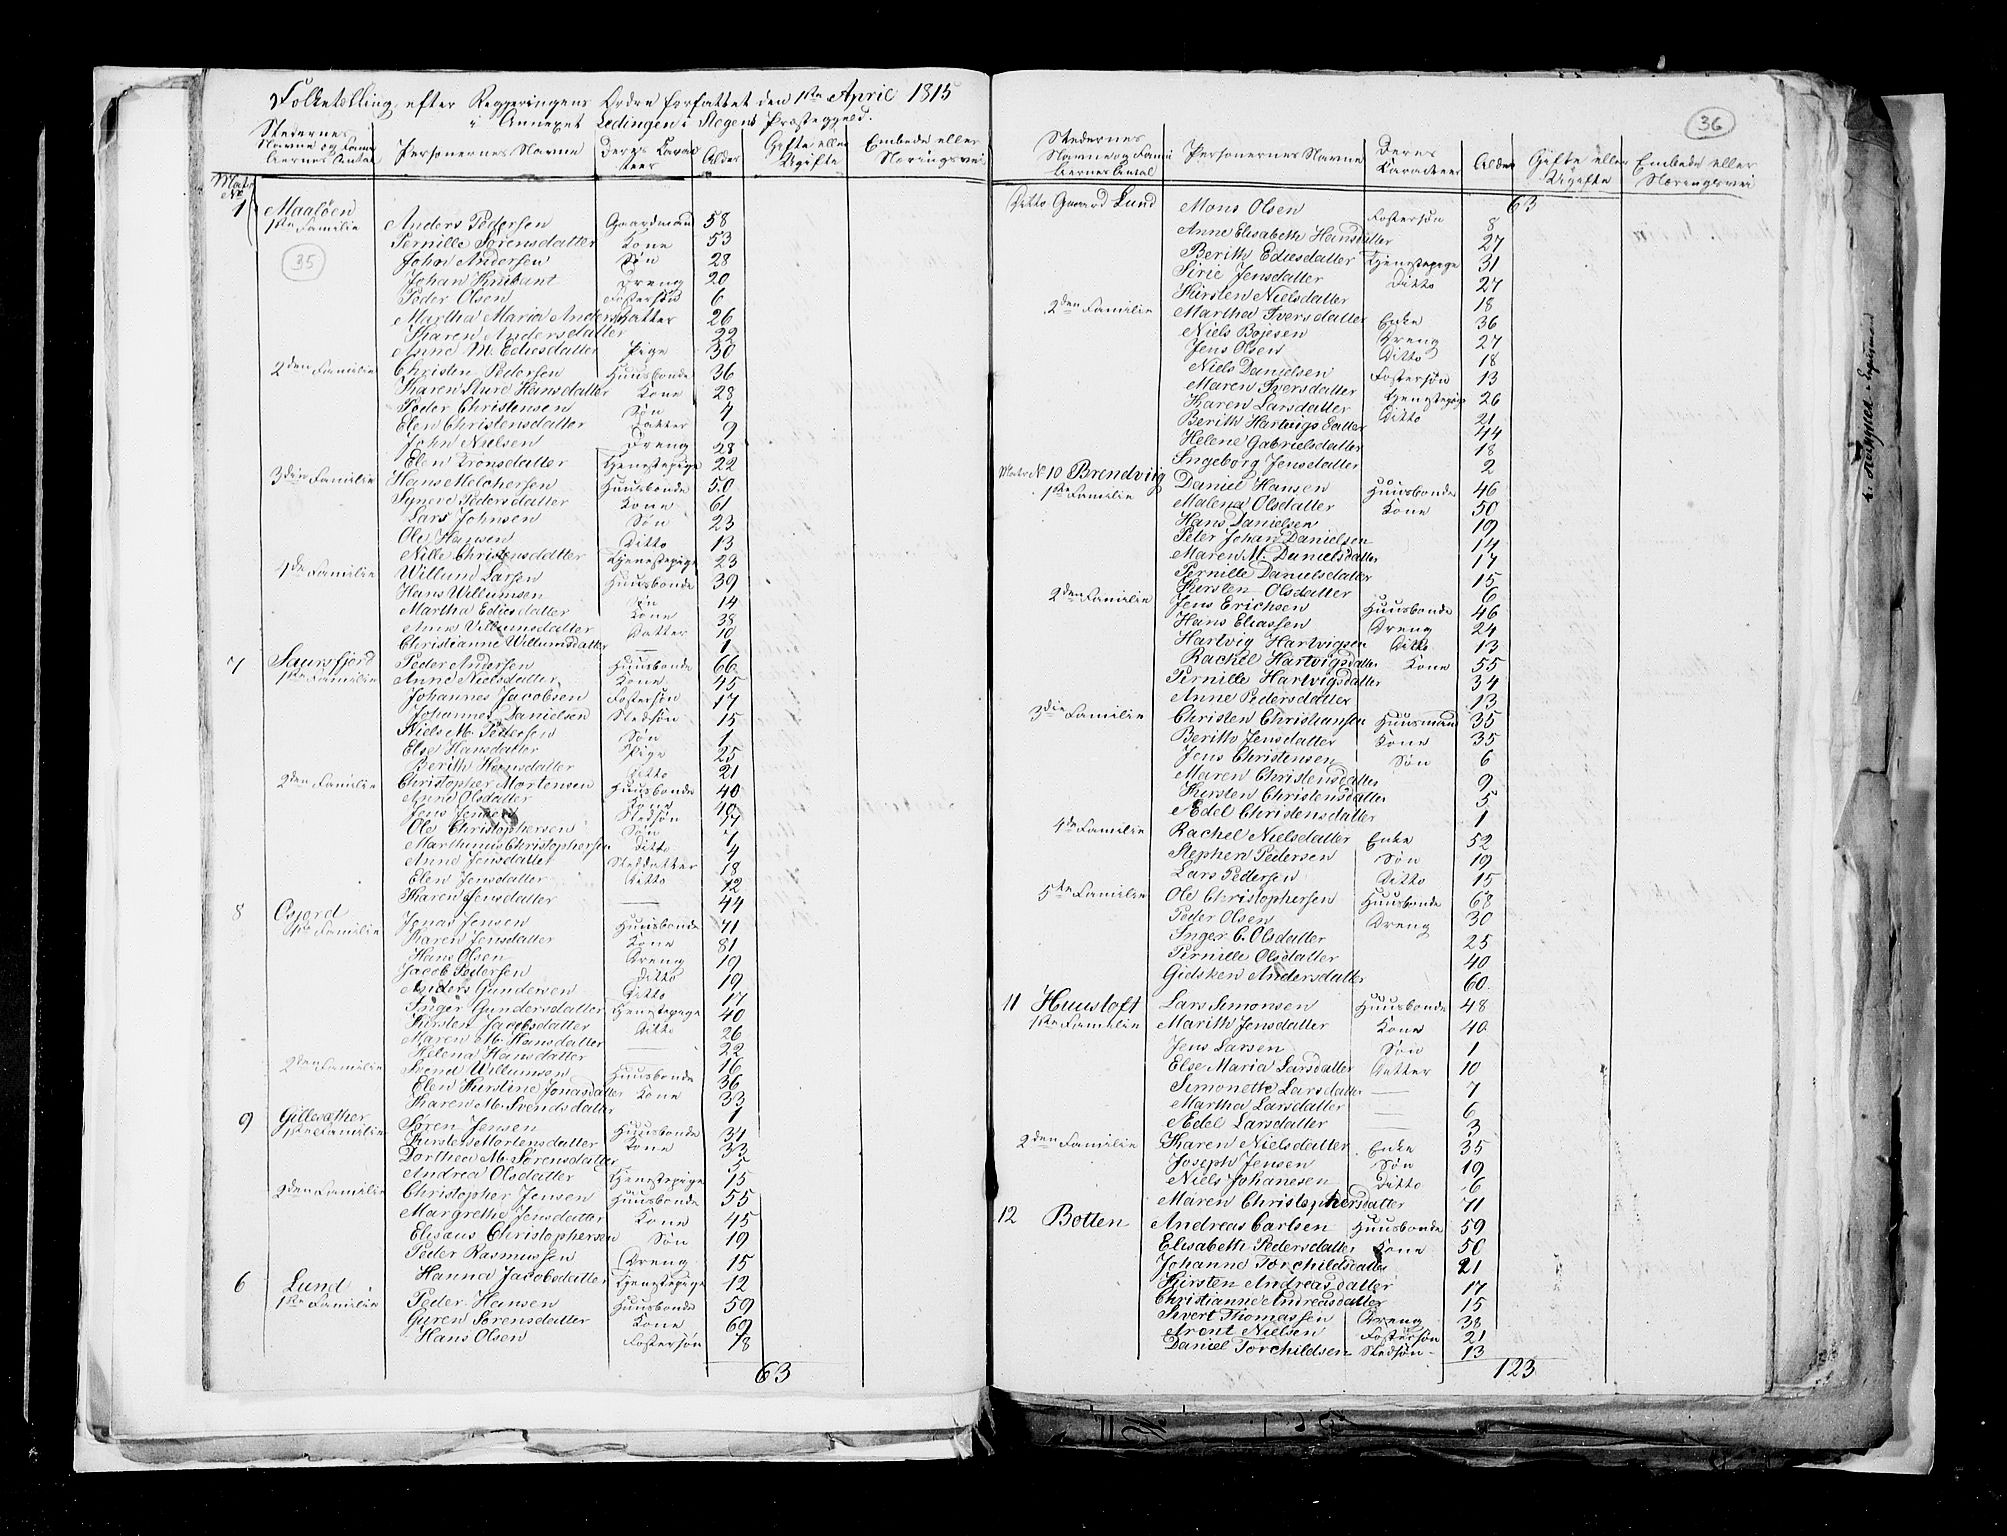 Folketelling, efter Regjeringens Ordre forfattet den 1ste April 1815
i Annexet Ledingen i Stegens Præstegjeld.
Stedernes Navne og Fami liernes Antal Personernes Navne Deres Karac teer Alder Gifte eller Ugifte Embede eller Næringsvei
Matr No
1 Maaløen
1ste Familie Anders Pedersen Gaardmand 58
Pernille Sørensdatter Kone 53
John Andersen Søn 28
Johan Knibant Dreng 20
Peder Olsen Fostersøn 6
Martha Maria Andersdatter 26
Karen Andersdatter 22
Anne M. Ediesdatter Pige 30
2den Familie Christen Pedersen Huusbonde 36
Karen Sture Hansdatter Kone 28
Peder Christensen Søn 4
Elen Christensdatter Datter 9
John Nielsen Dreng 28
Elen Kronsdatter Tjenestepige 22
3die Familie Hans Melchersen Huusbonde 50
Syneve Pedersdatter Kone 61
Lars Johnsen Søn 23
Ole Hansen Ditto 13
Nille Christensdatter Tjenestepige 23
4de Familie Willund Larsen Huusbonde 39
Hans Willumsen Søn 14
Martha Ediesdatter Kone 38
Anne Villumsdatter Datter 10
Christianne Willumsdatter — 1
7 Saursfjord Peder Andersen Huusbonde 66
1ste Familie Anne Nielsdatter Kone 45
Johannes Jacobsen Fostersøn 17
Johannes Danielsen Stedsøn 15
Niels M. Pedersen Søn 1
Else Hansdatter Pige 25
Berith Hansdatter Ditto 21
2den Familie Christopher Mortensen Huusbonde 40
Anne Olsdatter Kone 40
Jens Jensen Stedsøn 17
Ole Christophersen Søn 7
Marthinus Christophersen Ditto 4
Anne Jensdatter Steddatter 18
Elen Jensdatter Ditto 12
Karen Jensdatter — 44
8 Osjord
1ste Familie Jonas Jensen Huusbonde 41
Karen Jensdatter Kone 81
Hans Olsen Dreng 19
Jacob Pedersen Ditto 19
Anders Gundersen Ditto 17
Inger Gundersdatter Tjenestepige 40
Kirsten Jacobsdatter Ditto 26
Maren M. Hansdatter — 22
Helena Hansdatter — 16
2den Familie Svend Willumsen Huusbonde 36
Elen Kirstine Jonasdatter Kone 33
Karen M. Svendsdatter 1
9 Gillesæther
1ste Familie Søren Jensen Huusbonde 31
Kirsten Mortensdatter Kone 33
Dorthea M. Sørensdatter 5
Andrea Olsdatter Tjenestepige 15
2den Familie Christopher Jensen Huusbonde 55
Margrethe Jensdatter Kone 45
Elisæus Christophersen Søn 19
Peder Rasmussen Dreng 15
Hanna Jacobsdatter Tjenestepige 12
6 Lund
1ste Familie Peder Hansen Huusbonde 59
Guren Sørensdatter Kone 69
Hans Olsen Fostersøn 18
63
35
36
Stedernes Navne og Fami liernes Antal Personernes Navne Deres Karacteer Alder Gifte eller Ugifte Embede eller Næringsvei
63
Ditto Gaard Lund Mons Olsen Fostersøn 8
Anne Elisabeth Hansdatter 27
Berith Ediesdatter Tjenestepige 31
Sirie Jensdatter Ditto 27
Kirsten Nielsdatter 18
2den Familie Martha Iversdatter Enke 36
Niels Bojesen Dreng 27
Jens Olsen Ditto 18
Niels Danielsen Fostersøn 13
Maren Iversdatter Tjenestepige 26
Karen Larsdatter Ditto 21
Berith Hartvigsdatter 44
Helene Gabrielsdatter 18
Ingeborg Jensdatter 2
Matr No 10 Brendviig
1ste Familie Daniel Hansen Huusbonde 46
Malena Olsdatter Kone 50
Hans Danielsen 19
Peter Johan Danielsen 14
Maren M. Danielsdatter 17
Pernille Danielsdatter 15
Kirsten Olsdatter 6
2den Familie Jens Erichsen Huusbonde 46
Hans Eliassen Dreng 24
Hartvig Hartvigsen Ditto 13
Rachel Hartvigsdatter Kone 55
Pernille Hartvigsdatter 34
Anne Pedersdatter 13
3die Familie Christen Christiansen Huusmand 35
Beritte Jensdatter Kone 35
Jens Christensen Søn 6
Maren Christensdatter 9
Kirsten Christensdatter 5
Edel Christensdatter 1
4de Familie Rachel Nielsdatter Enke 52
Stephen Pedersen Søn 19
Lars Pedersen Ditto 15
5te Familie Ole Christophersen Huusbonde 68
Peder Olsen Dreng 30
Inger C. Olsdatter 25
Pernille Olsdatter 40
Gidsken Andersdatter 60
11 Huustoft Lars Simonsen Huusbonde 48
1ste Familie Marith Jensdatter Kone 40
Jens Larsen Søn 1
Else Maria Larsdatter Datter 10
Simonette Larsdatter — 7
Martha Larsdatter — 6
Edel Larsdatter — 3
2den Familie Karen Nielsdatter Enke 35
Joseph Jensen Søn 19
Niels Johanesen Ditto 6
Maren Christophersdatter 71
12 Botten Andreas Carlsen Huusbonde 59
Elisabeth Pedersdatter Kone 50
Johanne Torchildsdatter 21
Kirsten Andreasdatter 17
Christianne Andreasdatter 15
Sivert Thomassen Dreng 38
Arent Nielsen Fostersøn 21
Daniel Torchildsen Stedsøn 13
123